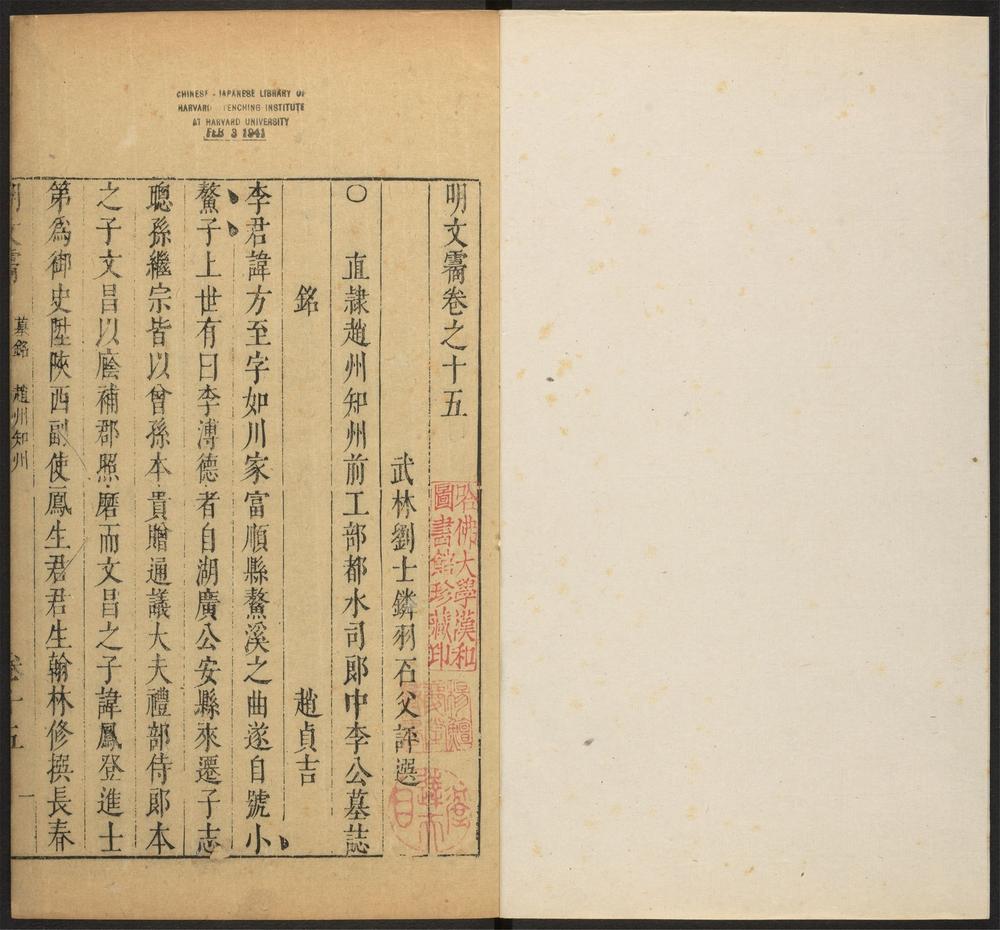 CHINESE - JAPANESE LIBRARY OF
HARVARD YENCHING INSTITUTE
AT HARVARD UNIVERSITY
FEB 3 1941
明文霱卷之十五
武林劉士鏻羽石父評選
○直隷趙州知州前工部都水司郎中李公墓誌
銘 趙貞吉
李君諱方至字如川家富順縣鰲溪之曲遂自號小
鰲子上世有曰李溥德者自湖廣公安縣來遷子志
聰孫繼宗皆以曾孫本貴贈通議大夫禮部侍郎本
之子文昌以廕補郡照磨而文昌之子諱鳳登進士
第爲御史陞陝西副使鳳生君君生翰林修撰長春
明文霱 墓銘 趙州知州 卷十五 一
哈佛大學漢和
圖書館珍藏印